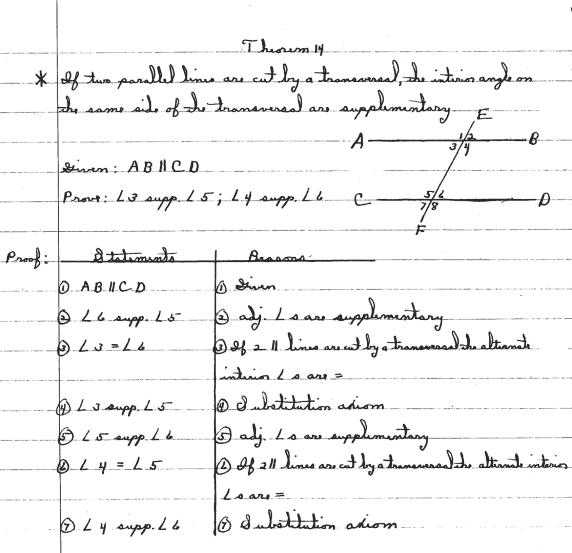 Theorem 14
* If two parallel lines are cut by a transversal, the interior angle on
the same side of the transversal are supplementary
E
A 1 2 B
3 4
Given: AB || CD
Prove: ∠3 supp. ∠5; ∠4 supp. ∠6
C 5 6 D
7 8
F
Proof: Statements Reasons
① AB || CD ① Given
② ∠6 supp. ∠5 ② adj. ∠s are supplementary
③ ∠3 = ∠6 ③ If 2 || lines are cut by a transversal the alternate
interior ∠s are =
④ ∠3 supp. ∠5 ④ Substitution axiom
⑤ ∠5 supp. ∠6 ⑤ adj. ∠s are supplementary
⑥ ∠4 = ∠5 ⑥ If 2 || lines are cut by a transversal the alternate interior
∠s are =
⑦ ∠4 supp. ∠6 ⑦ Substitution axiom